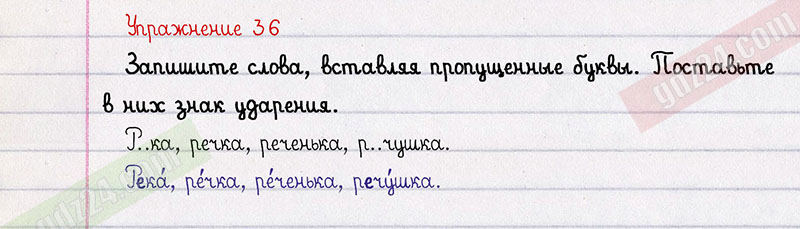 Упражнение 36
Запишите слова, вставляя пропущенные буквы. Поставьте
в них знак ударения.
Р..ка, речка, реченька, р..чушка.
Река́, ре́чка, ре́ченька, речу́шка.
gdz24.com
gdz24.com